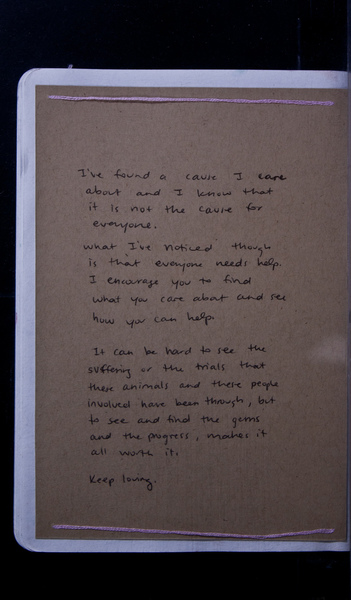 I've found a cause I care
about and I know that
it is not the cause for
everyone.
What I've noticed though
is that everyone needs help.
I encourage you to find
what you care about and see
how you can help.
It can be hard to see the
suffering or the trials that
these animals and these people
involved have been through, but
to see and find the gems
and the progress, makes it
all worth it.
Keep loving.